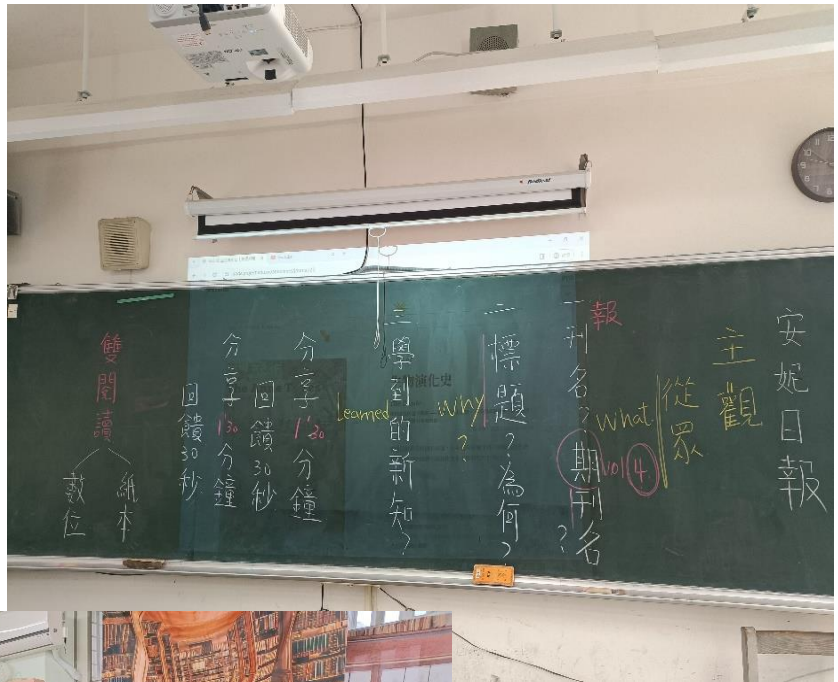 安妮日報
主觀
從眾
報
一刊名?期刊名?
What
101 4
二標題?為何?
Why?
三學到的新知?
Learned
分享1'30分鐘
回饋30秒
分享1'30分鐘
回饋30秒
雙閱讀
紙本
數位
演化史